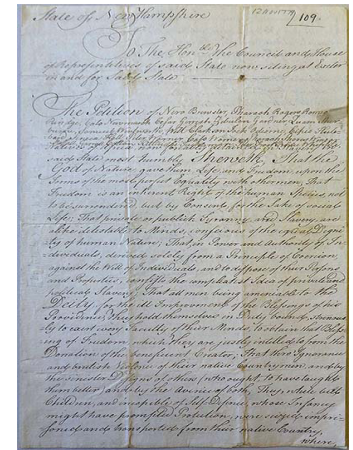 State of New Hampshire
109
To The Honble the Council and House
of Representatives of said State now siting at Exeter
in and for said State
The Petition of Nero Brewster, Pharaoh Rogers, Romeo
Natives of Africa
said State most humbly Sheweth, That the
God of Nature gave them Life and Freedom upon the
Terms of the most perfect Equality with other men; That
Freedom is an inherent Right of the human Species not
to be surrendered but by Consent for the Sake of social
Life; That private or publick Tyranny and Slavery are
alike detestable to Minds, conscious of the equal Digni-
ty of human Nature; That in Power and Authority of In-
dividuals, derived solely from a Principle of Coercion
against the Will of Individuals, and to dispose of their Persons
and Properties, consists the compleatest Idea of private and
political Slavery; That all men being ameniable to the
Deity, for the ill Improvement of the Blessings of his
Providence, they hold themselves in Duty bound, strenuous-
ly to exert every Faculty of their Minds to obtain that Bles-
ing of Freedom which they are justly intitled to from the
Donation of the beneficent Creator; That thro Ignorance
and brutish Violence of their native Countrymen, and by
the sinister Designs of others, who ought to have taught
them better, and by the Avarice of both; They, while but
Children, and incapable of Self-Defence, whose Infancy
might have prompted Protection, were seized, impri-
soned and transported from their native Country,
where,